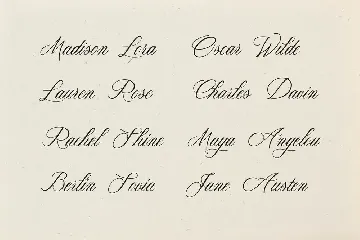 Madison Lora Oscar Wilde
Lauren Rose Charles Davin
Rachel Shine Maya Angelou
Berlin Jane Austen